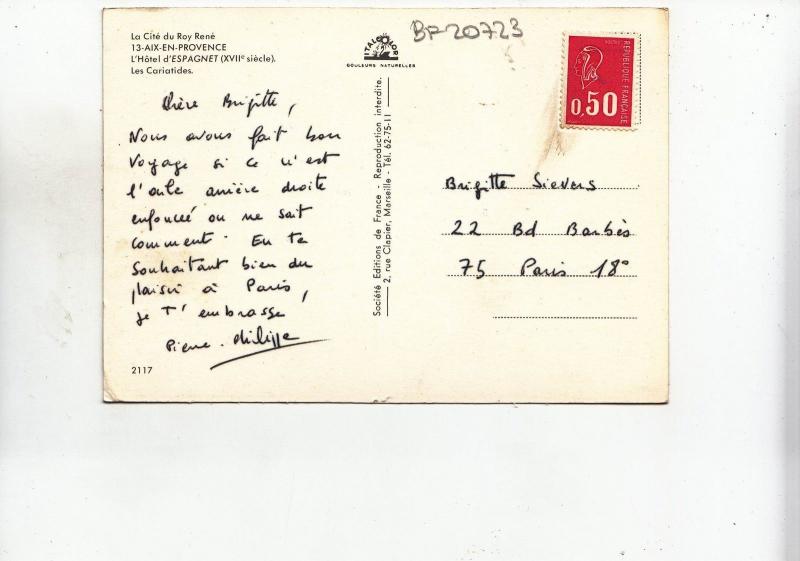 La Cité du Roy René
13-AIX-EN-PROVENCE
L'Hôtel d'ESPAGNET (XVIIe siècle).
Les Cariatides.
Chère Brigitte,
Nous avons fait bon
voyage si ce n'est
l'aile arrière droite
enfoncée on ne sait
comment. En te
souhaitant bien du
plaisir à Paris,
je t'embrasse
Pierre-Philippe
2117
ITALCOLOR
COULEURS NATURELLES
Société Editions de France - Reproduction interdite.
2, rue Clapier, Marseille - Tél. 62-75-11
BF-20723
POSTES
REPUBLIQUE FRANÇAISE
0,50
Brigitte Sievers
22 Bd Barbès
75 Paris 18°